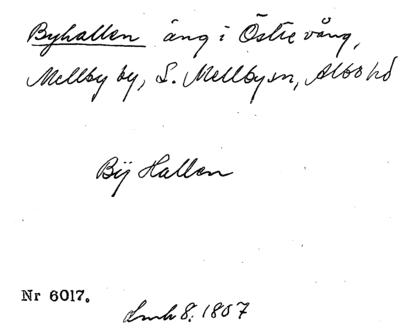 Byhallen äng i Östre vång,
Mellby by, S. Mellby sn, Albo hd
Bÿ Hallen
Nr 6017.
Lmh 8: 1807